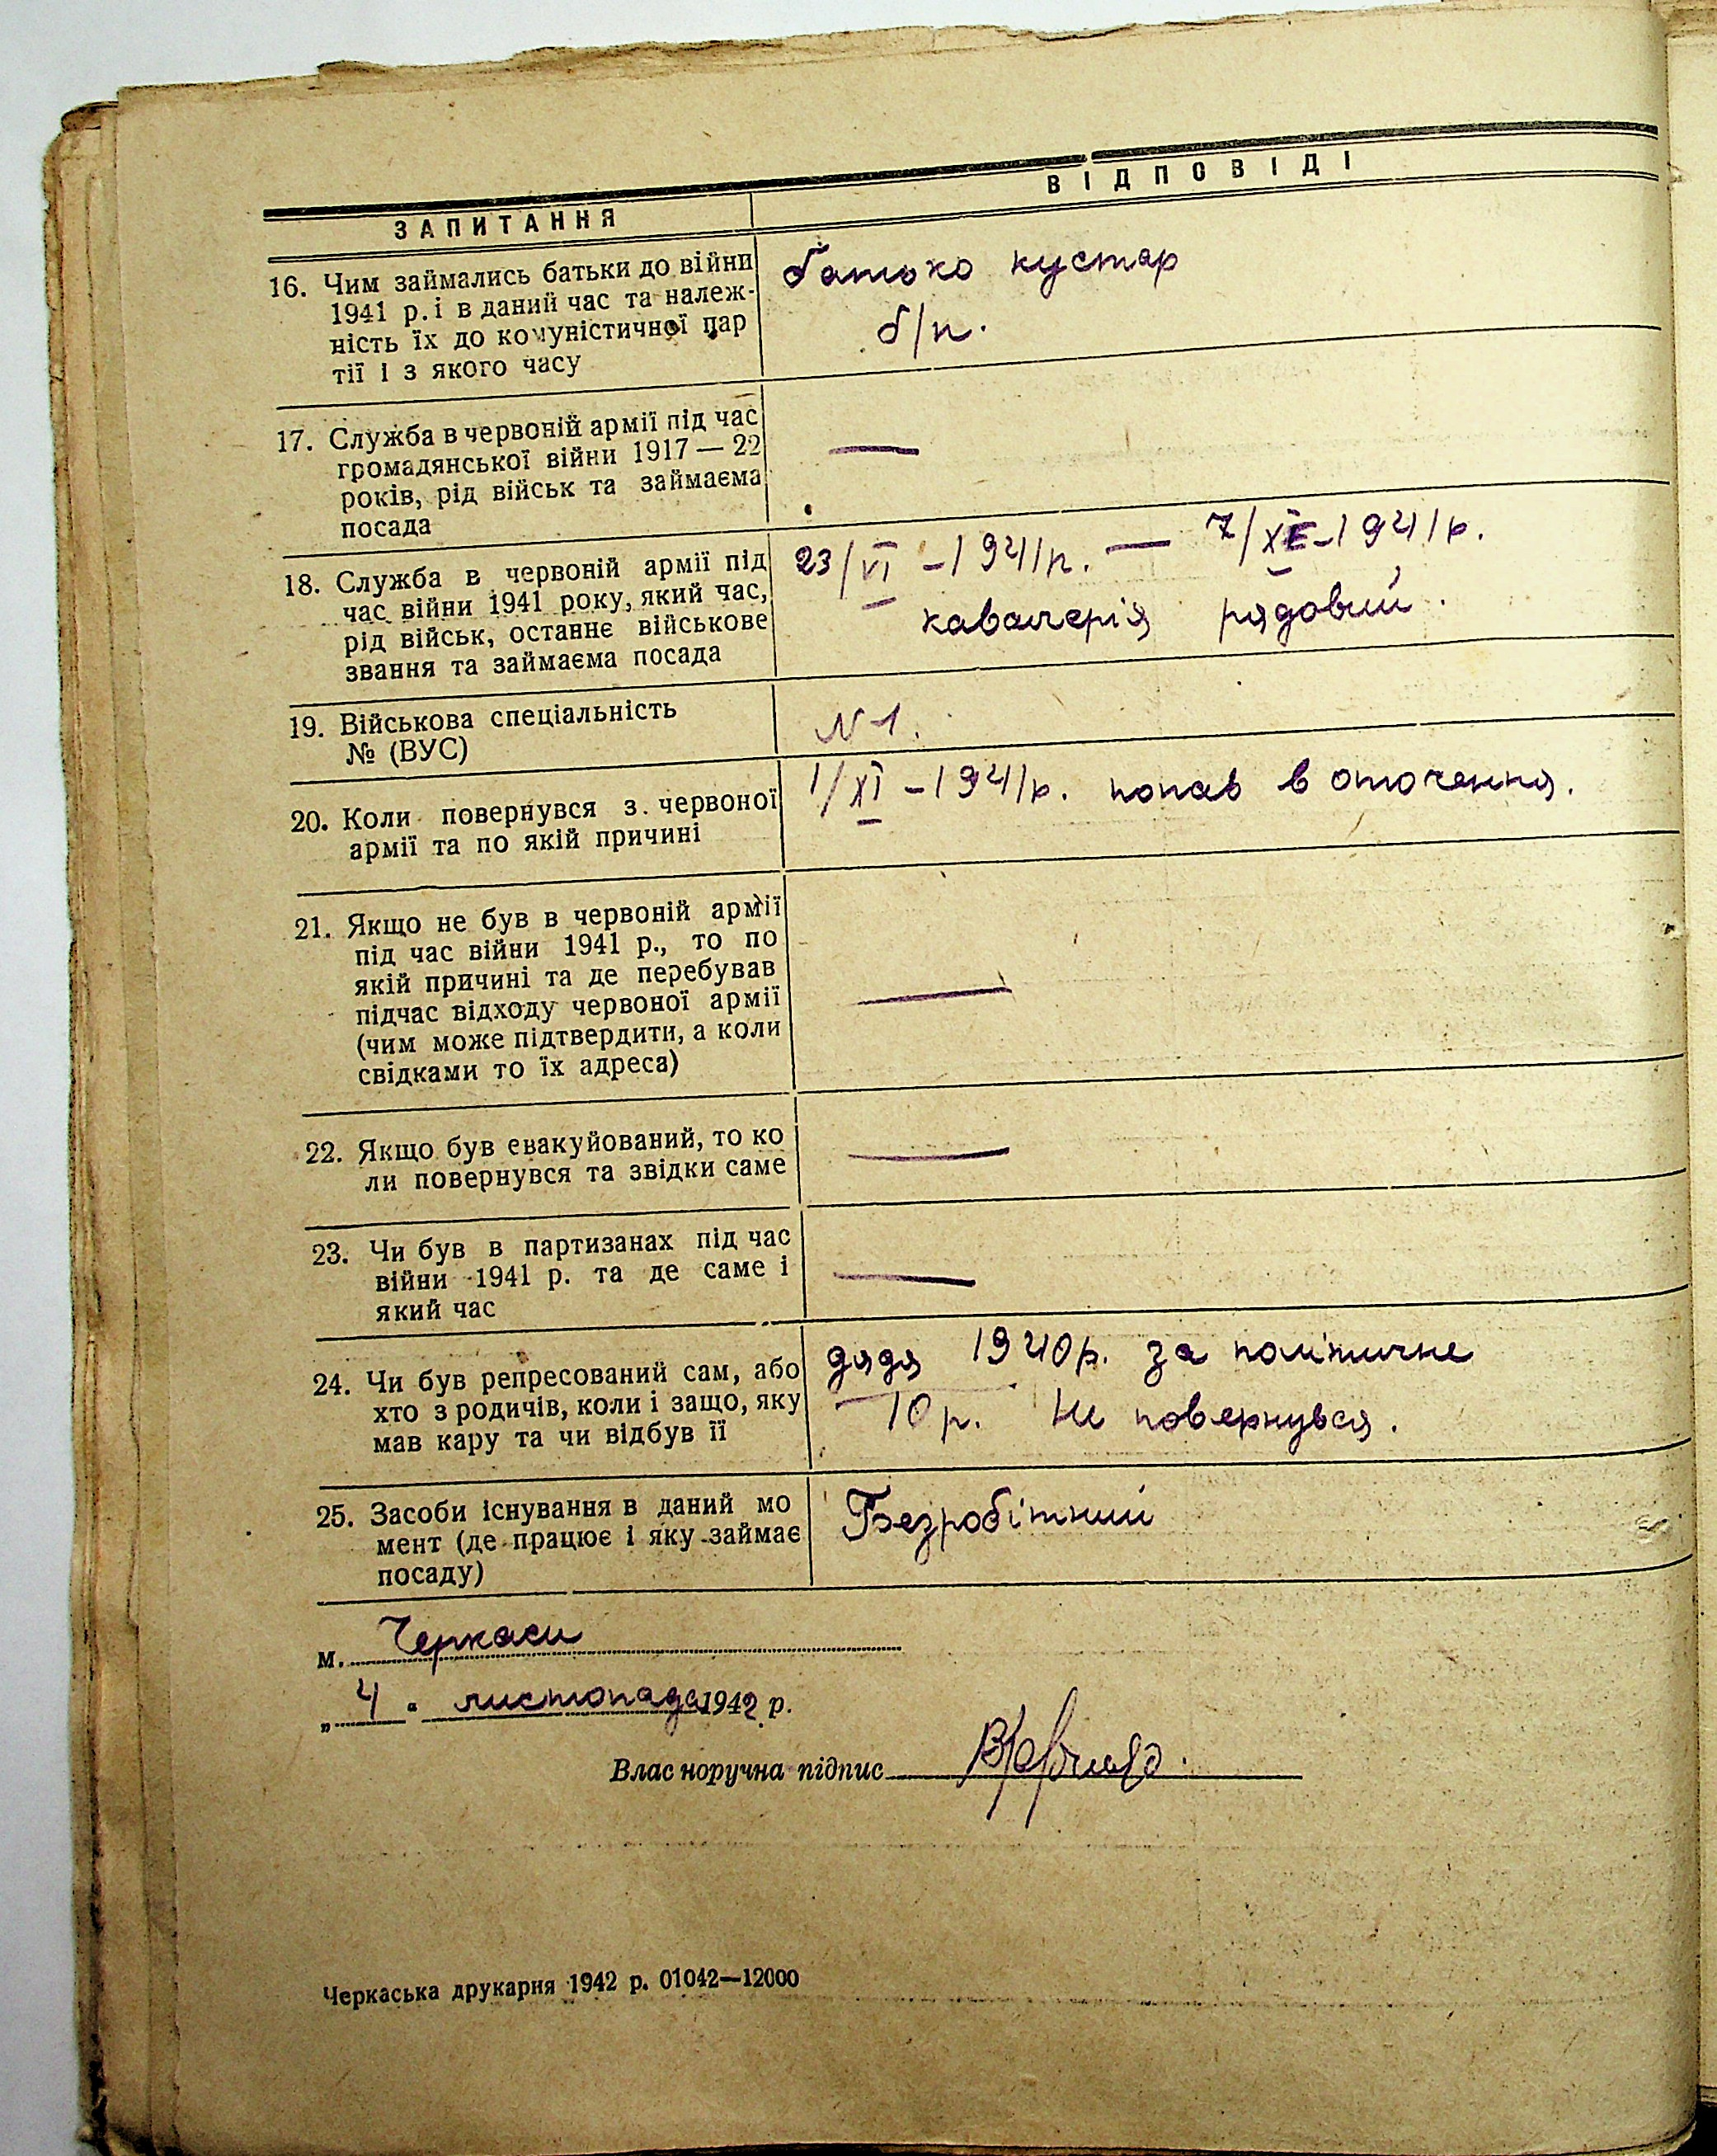 ЗАПИТАННЯ
ВІДПОВІДІ
16. Чим займались батьки до війни
1941 р. і в даний час та належ-
ність їх до комуністичної пар
тії і з якого часу
батько кустар
б/п.
17. Служба в червоній армії під час
громадянської війни 1917 — 22
років, рід військ та займаєма
посада
—
18. Служба в червоній армії під
час війни 1941 року, який час,
рід військ, останнє військове
звання та займаєма посада
23/VI – 1941р. — 7/XI – 1941р.
кавалерія рядовий.
19. Військова спеціальність
№ (ВУС)
N 1.
20. Коли повернувся з червоної
армії та по якій причині
1/XI – 1941р. попав в оточення.
21. Якщо не був в червоній армії
під час війни 1941 р., то по
якій причині та де перебував
підчас відходу червоної армії
(чим може підтвердити, а коли
свідками то їх адреса)
—
22. Якщо був евакуйований, то ко
ли повернувся та звідки саме
—
23. Чи був в партизанах під час
війни 1941 р. та де саме і
який час
—
24. Чи був репресований сам, або
хто з родичів, коли і защо, яку
мав кару та чи відбув її
дядя 1940р. за політичне
10 р. Не повернувся.
25. Засоби існування в даний мо
мент (де працює і яку займає
посаду)
Безробітний
м. Черкаси
„ 4 " листопада 1942 р.
Власноручна підпис
Черкаська друкарня 1942 р. 01042—12000